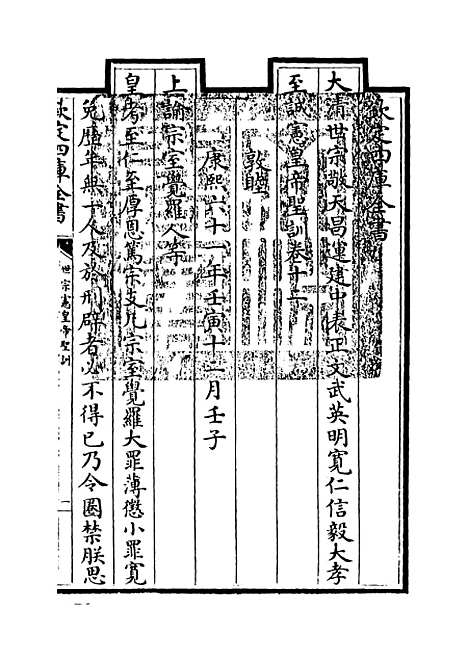 欽定四庫全書
大清世宗敬天昌運建中表正文武英明寬仁信毅大孝
至誠憲皇帝聖訓卷十二
敦睦
康熙六十一年壬寅十二月壬子
上諭宗室覺羅人等
皇考至仁至厚恩篤宗支凡宗室覺羅大罪薄懲小罪寬
免歷年無一人及於刑辟者必不得已乃令圈禁朕思
欽定四庫全書
世宗憲皇帝聖訓